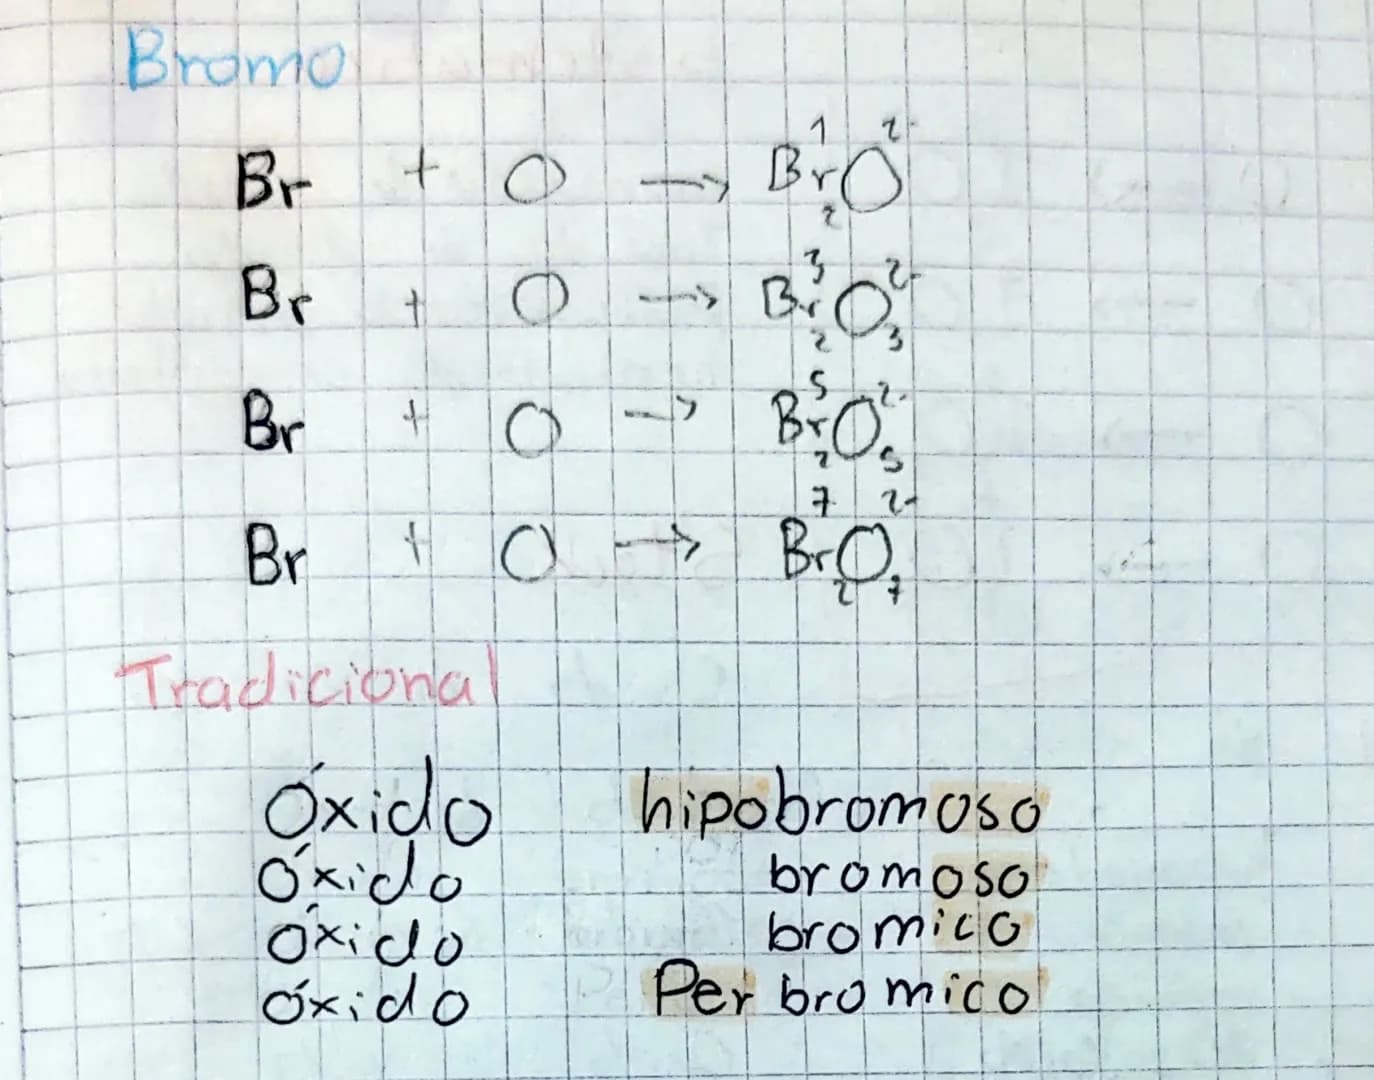 Bromo
Br + O → Br₂¹O²⁻
Br + O → Br₂³O₃²⁻
Br + O → Br₂⁵O₅²⁻
Br + O → Br₂⁷O₇²⁻
Tradicional
Óxido hipobromoso
Óxido bromoso
óxido bromico
óxido Per bromico